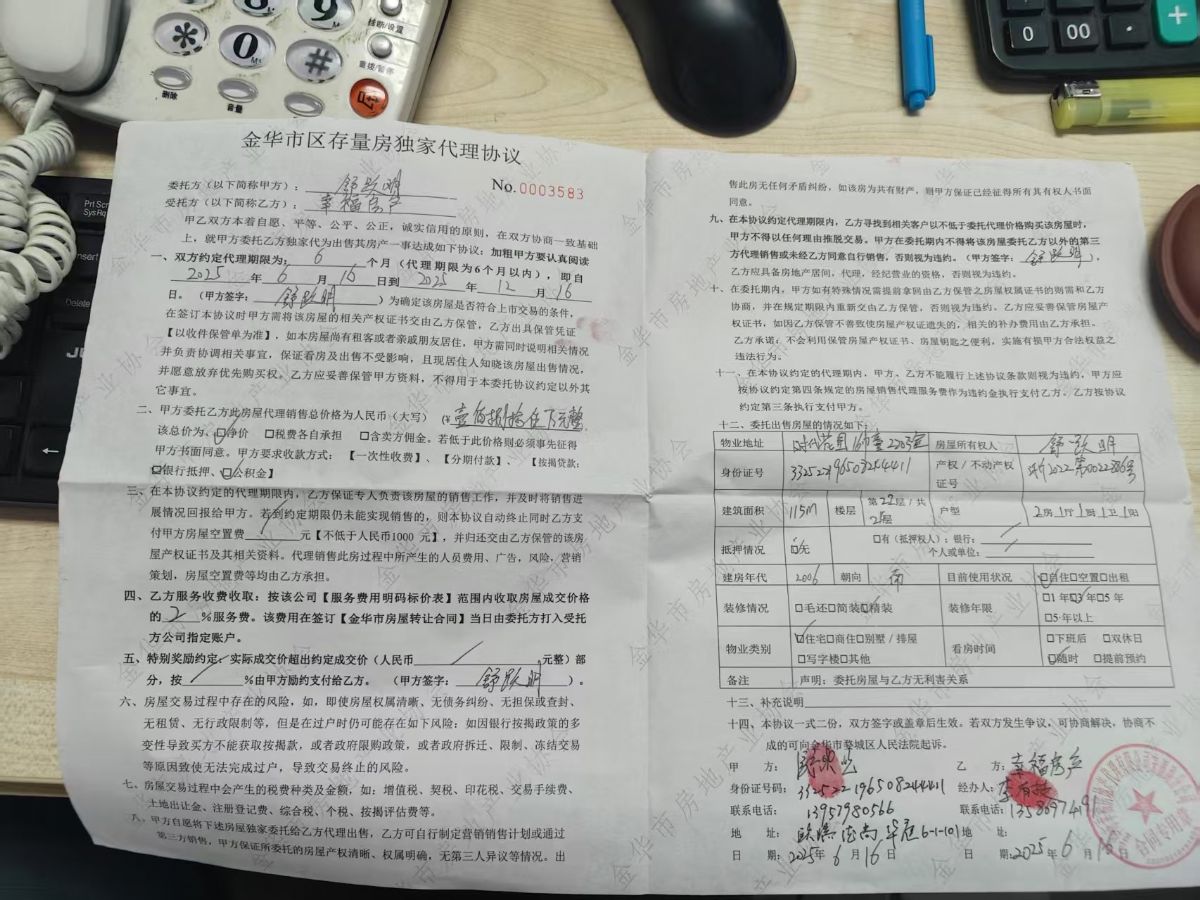 挂断/设置
重拨/暂停
*
0
9
#
删除
音量
0
00
.
+
Prt Scr
SysRq
Delete
金华市区存量房独家代理协议
No.0003583
委托方（以下简称甲方）：舒跃明
受托方（以下简称乙方）：幸福房产
甲乙双方本着自愿、平等、公平、公正，诚实信用的原则，在双方协商一致基础
上，就甲方委托乙方独家代为出售其房产一事达成如下协议：加粗甲方要认真阅读
一、双方约定代理期限为：6个月（代理期限为6个月以内），即自
2025年6月16日到2025年12月16
日。（甲方签字：舒跃明）为确定该房屋是否符合上市交易的条件，
在签订本协议时甲方需将该房屋的相关产权证书交由乙方保管，乙方出具保管凭证
【以收件保管单为准】，如本房屋尚有租客或者亲戚朋友居住，甲方需同时说明相关情况
并负责协调相关事宜，保证看房及出售不受影响，且现居住人知晓该房屋出售情况，
并愿意放弃优先购买权。乙方应妥善保管甲方资料，不得用于本委托协议约定以外其
它事宜。
二、甲方委托乙方此房屋代理销售总价格为人民币（大写）壹佰捌拾任万元整
该总价为、☑净价 □税费各自承担 □含卖方佣金。若低于此价格则必须事先征得
甲方书面同意。甲方要求收款方式：【一次性收费】、【分期付款】、【按揭贷款：
☑银行抵押、☑公积金】
三、在本协议约定的代理期限内，乙方保证专人负责该房屋的销售工作，并及时将销售进
展情况回报给甲方。若到约定期限仍未能实现销售的，则本协议自动终止同时乙方支
付甲方房屋空置费/元【不低于人民币1000 元】，并归还交由乙方保管的该房
屋产权证书及其相关资料。代理销售此房过程中所产生的人员费用、广告，风险，营销
策划，房屋空置费等均由乙方承担。
四、乙方服务收费收取：按该公司【服务费用明码标价表】范围内收取房屋成交价格
的2%服务费。该费用在签订【金华市房屋转让合同】当日由委托方打入受托
方公司指定账户。
五、特别奖励约定：实际成交价超出约定成交价（人民币/元整）部
分，按/%由甲方励约支付给乙方。（甲方签字：舒跃明）。
六、房屋交易过程中存在的风险，如，即使房屋权属清晰、无债务纠纷、无担保或查封、
无租赁、无行政限制等，但是在过户时仍可能存在如下风险：如因银行按揭政策的多
变性导致买方不能获取按揭款，或者政府限购政策，或者政府拆迁、限制、冻结交易
等原因致使无法完成过户，导致交易终止的风险。
七、房屋交易过程中会产生的税费种类及金额，如：增值税、契税、印花税、交易手续费、
土地出让金、注册登记费、综合税、个税、按揭评估费等。
八、甲方自愿将下述房屋独家委托给乙方代理出售，乙方可自行制定营销销售计划或通过
第三方销售，甲方保证所委托的房屋产权清晰、权属明确，无第三人异议等情况。出
售此房无任何矛盾纠纷，如该房为共有财产，则甲方保证已经征得所有具有权人书面
同意。
九、在本协议约定代理期限内，乙方寻找到相关客户以不低于委托代理价格购买该房屋时，
甲方不得以任何理由推脱交易。甲方在委托期内不得将该房屋委托乙方以外的第三
方代理销售或未经乙方同意自行销售，否则视为违约。（甲方签字：舒跃明），
乙方应具备房地产居间，代理，经纪营业的资格，否则视为违约。
十、在委托期内，甲方如有特殊情况需提前拿回由乙方保管之房屋权属证书的则需和乙方
协商，并在规定期限内重新交由乙方保管，否则视为违约。乙方应妥善保管房屋产
权证书，如因乙方保管不善致使房屋产权证遗失的，相关的补办费用由乙方承担。
乙方承诺：不会利用保管房屋产权证书、房屋钥匙之便利，实施有损甲方合法权益之
违法行为。
十一、在本协议约定的代理期内，甲方、乙方不能履行上述协议条款则视为违约，甲方应
按协议约定第四条规定的房屋销售代理服务费作为违约金执行支付乙方。乙方按协议
约定第三条执行支付甲方。
十二、委托出售房屋的情况如下：
物业地址 时代花园16幢 2203室 房屋所有权人 舒跃明
身份证号 产权/不动产权证号
建筑面积 115M 楼层 第22层/共25层 户型 2房1厅1厨1卫1阳
抵押情况 ☑无 □有（抵押权人）：银行：
个人或单位：
建房年代 2006 朝向 南 目前使用状况 ☑自住□空置□出租
装修情况 □毛还□简装☑精装 装修年限 □1年☑3年□5年
□5年以上
物业类别 ☑住宅□商住□别墅/排屋 看房时间 □下班后 □双休日
□写字楼□其他 ☑随时 □提前预约
备注 声明：委托房屋与乙方无利害关系
十三、补充说明
十四、本协议一式二份，双方签字或盖章后生效。若双方发生争议，可协商解决，协商不
成的可向金华市婺城区人民法院起诉。
甲 方： 乙 方：幸福房产
身份证号码：332522196508244411 经办人：
联系电话：13957980566 联系电话：
地 址： 地 址：
日 期：2025年6月16日 日 期：2025年6月16日